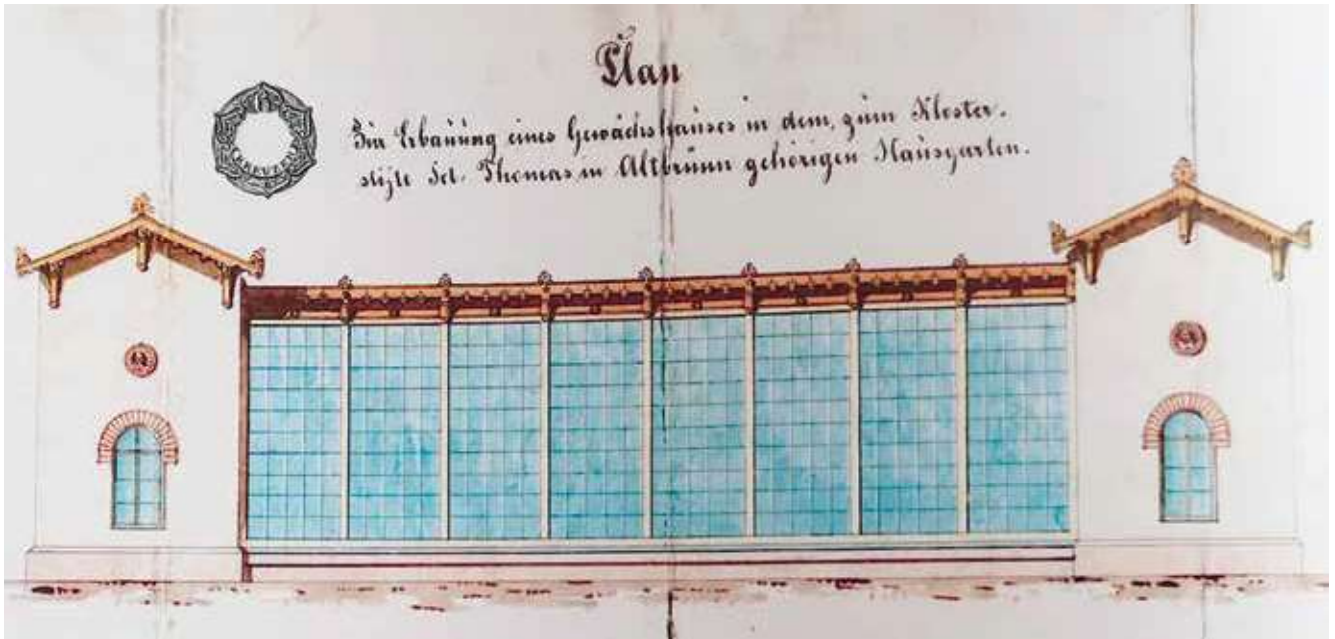 Plan
Zur Erbauung eines Gewächshauses in dem, zum Kloster-
stifte Sct. Thomas in Altbrünn gehörigen Hausgarten.